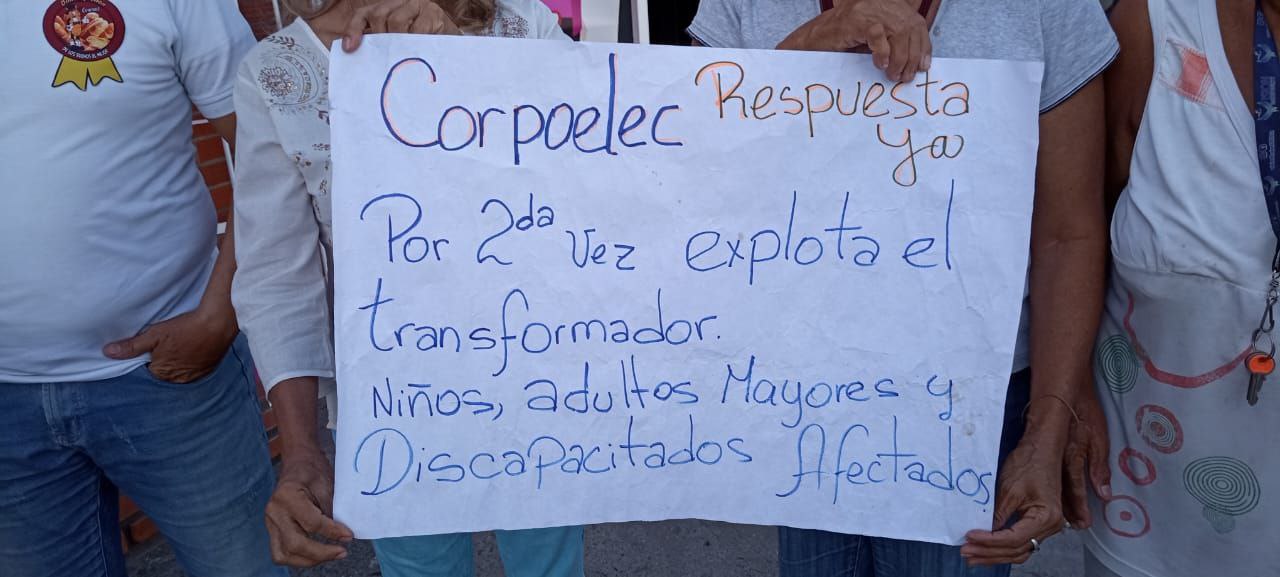 Corpoelec Respuesta
ya
Por 2da Vez explota el
transformador.
Niños, adultos Mayores y
Discapacitados Afectados.